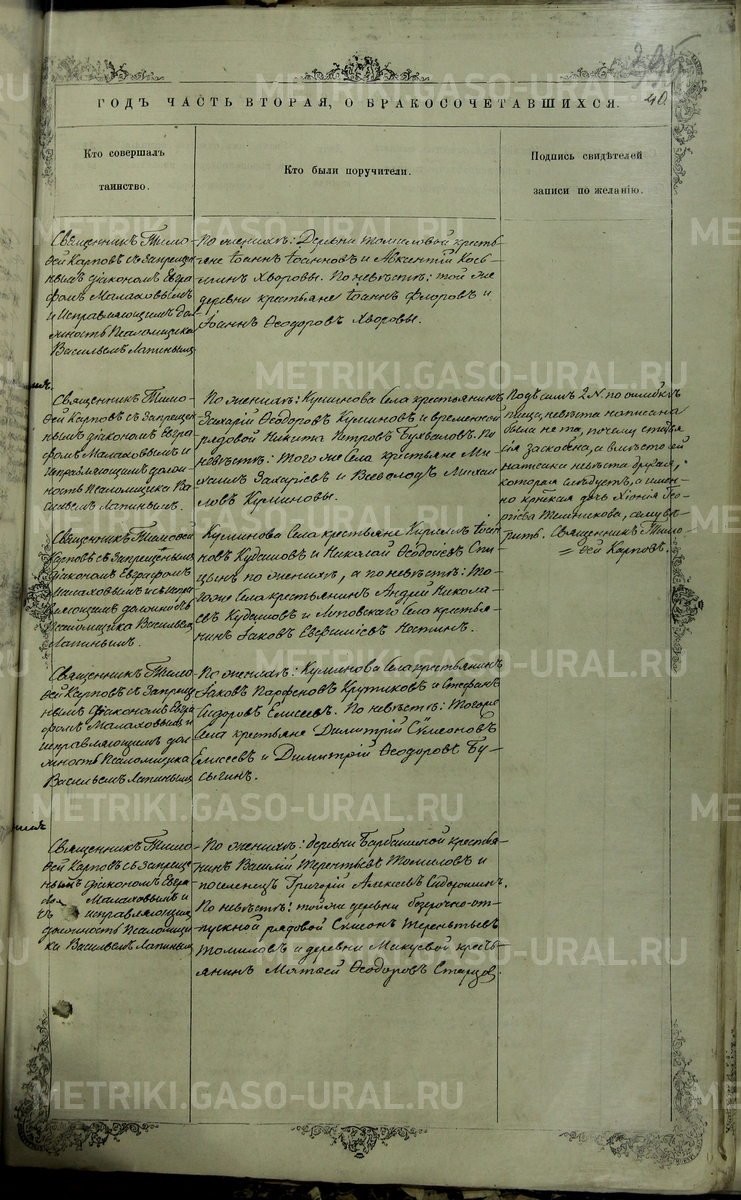 40.
ГОДЪ ЧАСТЬ ВТОРАЯ, О БРАКОСОЧЕТАВШИХСЯ.
Кто совершалъ
таинство.
Кто были поручители.
Подпись свидѣтелей
записи по желанію.
Священникъ Тимо-
ѳей Карповъ съ запрещен-
нымъ діакономъ Евгра-
фомъ Малаховымъ
и исправляющимъ дол-
жность Псаломщика
Васильемъ Лапинымъ
По женихѣ: Деревни Томиловой кресть-
яне Іоаннъ Іоанновъ и Авксентій Козь-
минъ Хворовы. По невѣстѣ: той же
деревни крестьяне Іоаннъ Флоровъ и
Іоаннъ Ѳеодоровъ Хворовы.
Священникъ Тимо-
ѳей Карповъ съ запрещен-
нымъ діакономъ Евгра-
фомъ Малаховымъ и
исправляющимъ долж-
ность Псаломщика Ва-
сильемъ Лапинымъ.
По женихѣ: Куминова Села крестьянинъ
Захарій Ѳеодоровъ Куминовъ и временной
рядовой Никита Петровъ Бухваловъ. По
невѣстѣ: того же Села крестьяне Ми-
хаилъ Захаріевъ и Всеволодъ Михаи-
ловъ Куминовы.
Подъ симъ 2 N по ошибкѣ
писца, невѣста написана
была не та, почему статья
сія заскоблена, а вмѣсто ей
написана невѣста другая,
которая слѣдуетъ, а имен-
но
дочь Хіонія Ге-
оргіева
Священникъ Тимо-
ѳей Карповъ.
Священникъ Тимоѳей
Карповъ съ запрещеннымъ
діакономъ Евграфомъ
Малаховымъ и исправ-
ляющимъ должность
Псаломщика Васильемъ
Лапинымъ.
Куминова Села крестьяне Кириллъ Іоан-
новъ Кубасовъ и Николай Ѳеодосіевъ Спи-
цынъ по женихѣ, а по невѣстѣ: То-
гоже Села крестьянинъ Андрей Никола-
евъ Кубасовъ и Липовскаго Села крестья-
нинъ Іаковъ Евфиміевъ Костинъ.
Священникъ Тимо-
ѳей Карповъ съ запрещен-
нымъ діакономъ Евгра-
фомъ Малаховымъ и
исправляющимъ дол-
жность Псаломщика
Васильемъ Лапинымъ
По женихѣ: Куминова Села крестьянинъ
Іаковъ Парфеновъ Крутиковъ и Стефанъ
Сидоровъ Елисеевъ. По невѣстѣ: Тогоже
Села крестьяне Димитрій Сѵмеоновъ
Елисеевъ и Димитрій Ѳеодоровъ Бу-
сыгинъ.
Священникъ Тимо-
ѳей Карповъ съ запреще-
ннымъ діакономъ Евгра-
Малаховымъ и
исправляющимъ
должность Псаломщи-
ка Васильемъ Лапинымъ
По женихѣ: деревни Барбашиной крестья-
нинъ Василій Терентьевъ Томиловъ и
поселенецъ Григорій Алексѣевъ Сидорошинъ.
По невѣстѣ: тойже деревни безсрочно-от-
пускной рядовой Сѵмеонъ Терентьевъ
Томиловъ и деревни Микуевой кресть-
янинъ Матѳей Ѳеодоровъ Старцовъ.
METRIKI.GASO-URAL.RU